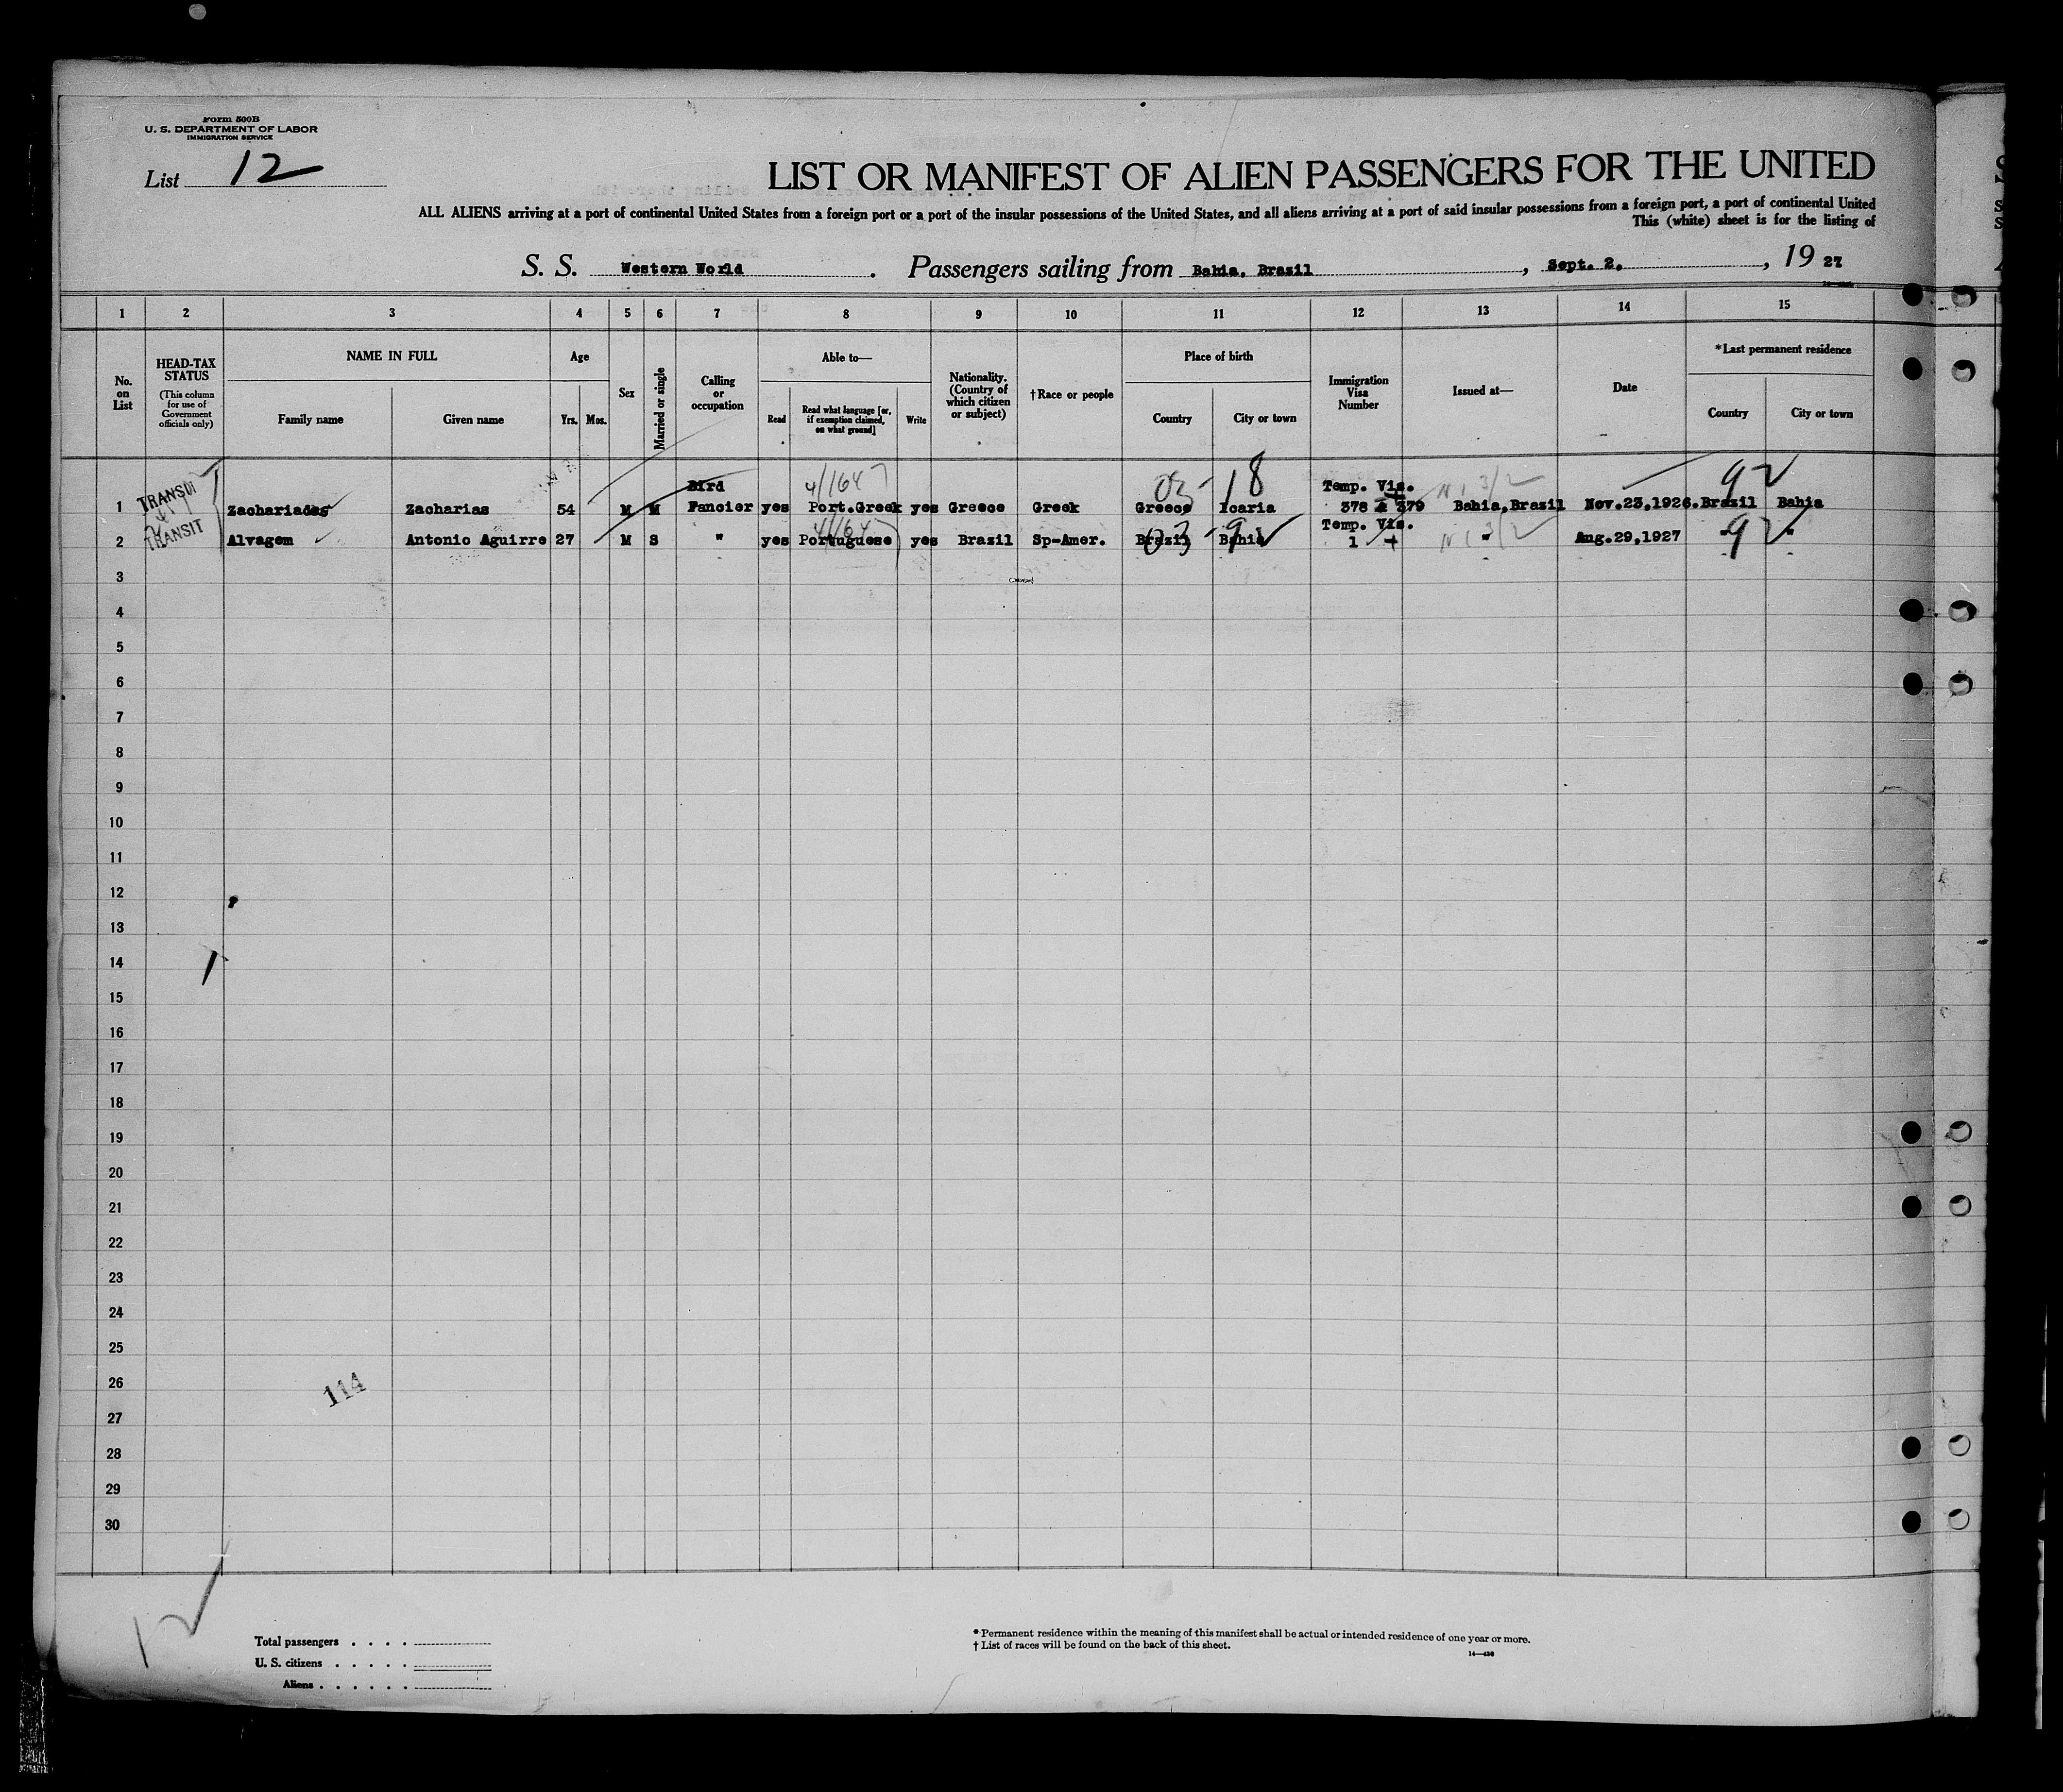 Form 500B
U. S. DEPARTMENT OF LABOR
IMMIGRATION SERVICE
List 12
LIST OR MANIFEST OF ALIEN PASSENGERS FOR THE UNITED
ALL ALIENS arriving at a port of continental United States from a foreign port or a port of the insular possessions of the United States, and all aliens arriving at a port of said insular possessions from a foreign port, a port of continental United
This (white) sheet is for the listing of
S. S. Western World . Passengers sailing from Bahia, Brazil , Sept. 2, , 19 27
1 2 3 4 5 6 7 8 9 10 11 12 13 14 15
No. on List
HEAD-TAX STATUS
(This column for use of Government officials only)
NAME IN FULL
Family name Given name
Age
Yrs. Mos.
Sex
Married or single
Calling or occupation
Able to—
Read
Read what language [or, if exemption claimed, on what ground]
Write
Nationality. (Country of which citizen or subject)
†Race or people
Place of birth
Country City or town
Immigration Visa Number
Issued at—
Date
*Last permanent residence
Country City or town
1 TRANSIT Zachariades Zacharias 54 M M Bird Fancier yes Port.Greek yes Greece Greek Greece Icaria Temp. Vis. 378 & 379 Bahia,Brazil Nov.23,1926. Brazil Bahia
4/1647 03- 18 92
2 TRANSIT Alvagem Antonio Aguirre 27 M S " yes Portuguese yes Brazil Sp-Amer. Brazil Bahia Temp. Vis. 1 " Aug.29,1927 " "
03 -92 92
3
4
5
6
7
8
9
10
11
12
13
14
15
16
17
18
19
20
21
22
23
24
25
26
114
27
28
29
30
12
Total passengers . . . .
U. S. citizens . . . . .
Aliens . . . . . .
* Permanent residence within the meaning of this manifest shall be actual or intended residence of one year or more.
† List of races will be found on the back of this sheet.
14—430